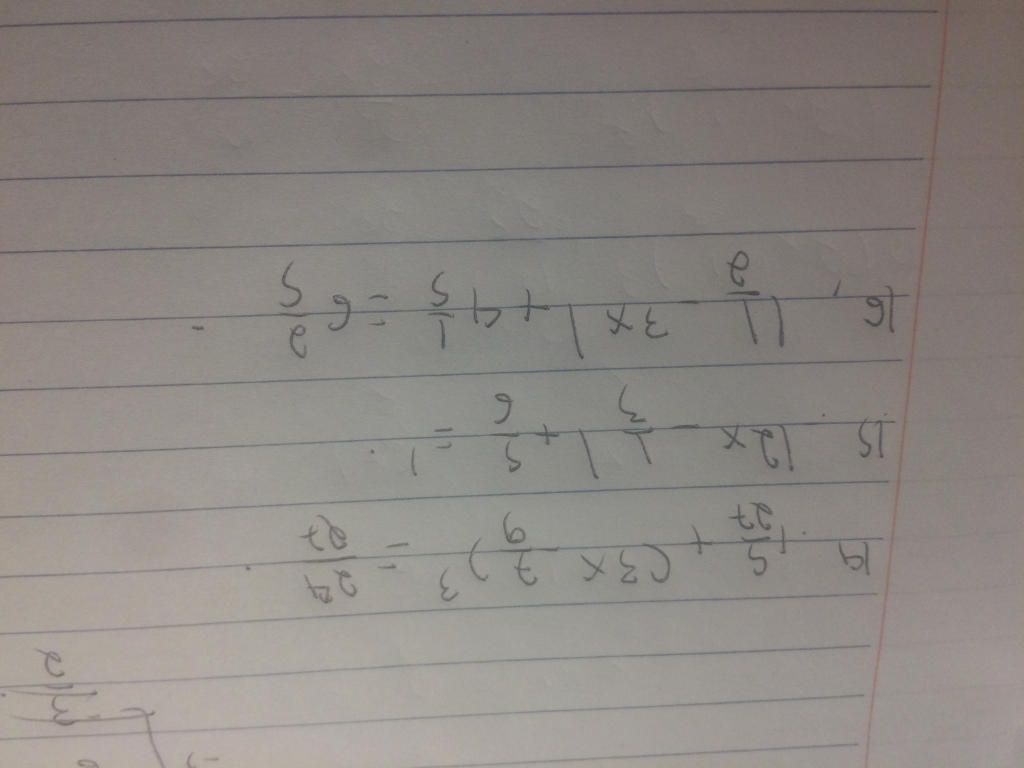 3/2
14. + 5/27 + (3x - 7/9)³ = 24/27.
15. |2x - 1/3| + 5/6 = 1.
16. |1/2 - 3x| + 4 1/5 = 6 2/5.